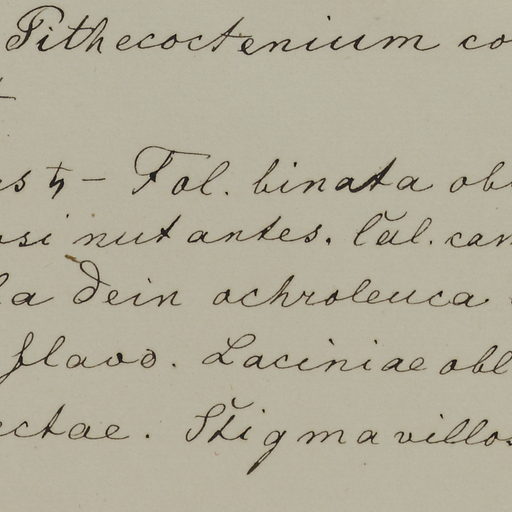 Pithecoctenium co
us ♄ – Fol. binata ob
osi nutantes. Cal. cam
la dein ochroleuca
flavo. Laciniae obl
ectae. Stigma villos